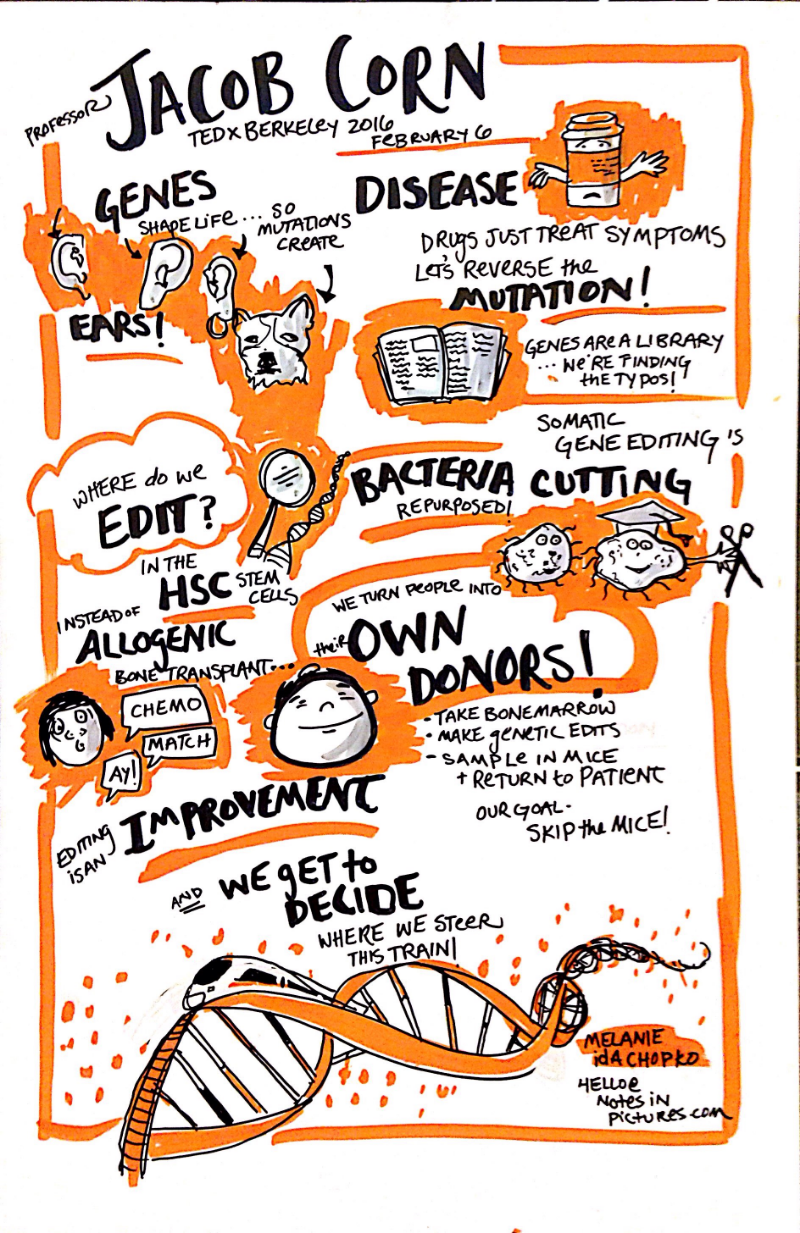 PROFESSOR JACOB CORN
TEDX BERKELEY 2016
FEBRUARY 6
GENES
SHAPE LIFE... SO
MUTATIONS
CREATE
EARS!
DISEASE
DRUGS JUST TREAT SYMPTOMS
LET'S REVERSE the
MUTATION!
GENES ARE A LIBRARY
... WE'RE FINDING
the TYPOS!
WHERE do we
EDIT?
SOMATIC
GENE EDITING IS
BACTERIA CUTTING
REPURPOSED!
IN THE
HSC STEM
CELLS
INSTEAD OF
ALLOGENIC
BONE TRANSPLANT...
CHEMO
MATCH
AY!
WE TURN PEOPLE INTO
their OWN
DONORS!
- TAKE BONEMARROW
- MAKE genetic EDITS
- SAMPLE IN MICE
+ RETURN to PATIENT
OUR GOAL-
SKIP the MICE!
EDITING
IS AN IMPROVEMENT
AND WE gET to
DECIDE
WHERE WE STEER
THIS TRAIN!
MELANIE
idA CHOPKO
HELLO@
NOTES IN
PICTURES.COM